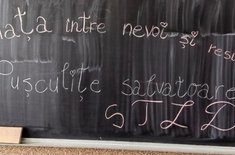 ața între nevoi și resu
Pușculițe salvatoare
STLD